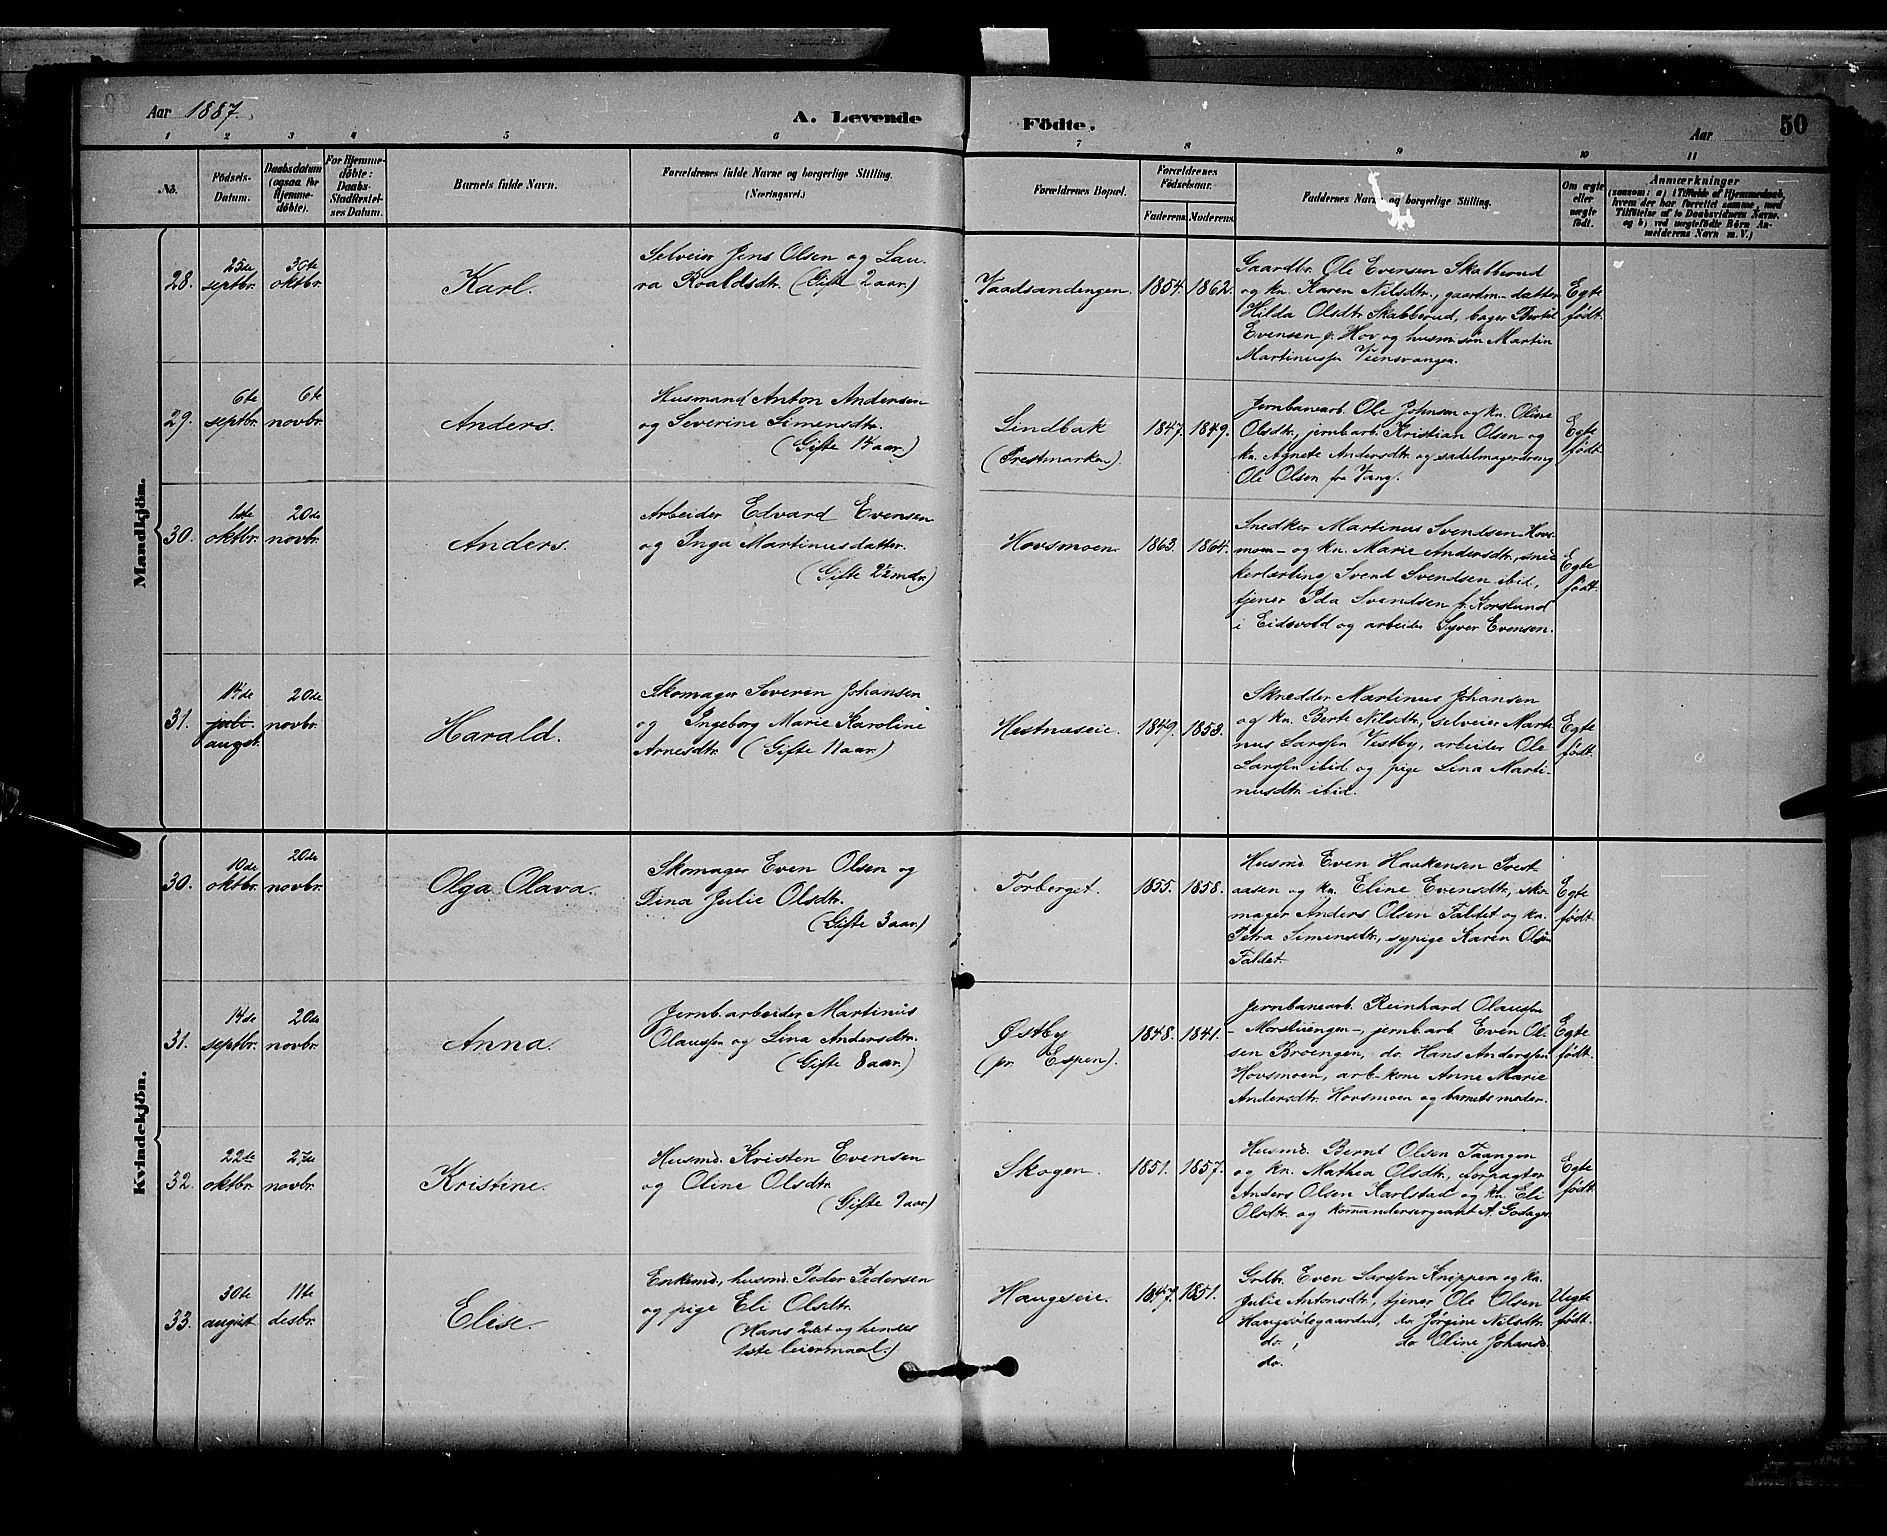 Aar 1887.
A. Levende
Födte.
Aar
50
1 2 3 4 5 6 7 8 9 10 11
No.
Födsels-
Datum.
Daabsdatum
(ogsaa for
Hjemme-
döbte).
For Hjemme-
döbte:
Daabs-
Stadfæstel-
ses Datum.
Barnets fulde Navn.
Forældrenes fulde Navne og borgerlige Stilling.
(Næringsvei.)
Forældrenes Bopæl.
Forældrenes
Födselsaar.
Faderens. Moderens.
Faddernes Navne og borgerlige Stilling.
Om ægte
eller
uægte
födt.
Anmærkninger
(saasom: a) i Tilfælde af Hjemmedaab,
hvem der har forrettet samme, med
Tilföielse af to Daabsvidners Navne,
og b) ved uægtefödte Börn An-
melderens Navn m. V.)
Mandkjön.
28.
25de
septbr.
30te
oktbr.
Karl.
Selveier Jens Olsen og Lau-
ra Roaldsdtr. (Gifte 2 aar)
Vaadsandengen.
1854. 1862.
Gaardbr. Ole Evensen Skabberud
og kn. Karen Nilsdtr., gaardm.-datter
Hilda Olsdtr Skabberud, bager Bertil
Evensen p. Hov og husm.søn Martin
Martinussen
Egte
født.
29.
6te
septbr.
6te
novbr.
Anders.
Husmand Anton Andersen
og Severine Simensdtr.
(Gifte 14 aar)
Lindbak
(Prestmarken).
1847. 1849.
Jernbanearb. Ole Johnsen og kn. Oline
Olsdtr., jernb.arb. Kristian Olsen og
kn. Agnete Andersdtr og sadelmagerdreng
Ole Olsen fra Vang.
Egte
født.
30.
1ste
oktbr.
20de
novbr.
Anders.
Arbeider Edvard Evensen
og Inga Martinusdatter.
(Gifte 2½ mdr)
Hovsmoen.
1863. 1864.
Snedker Martinus Svendsen Hovs-
moen - og kn. Marie Andersdtr., sned-
kerlærling Svend Svendsen ibid.,
tjener Ida Svendsen p. Korslund
i Eidsvold og arbeider Syver Evensen.
Egte
født.
31.
14de
juli
augst.
20de
novbr.
Harald.
Skomager Severin Johansen
og Ingeborg Marie Karoline
Arnesdtr. (Gifte 11 aar)
Hestnæseie.
1849. 1853.
Skrædder Martinus Johansen
og kn. Berte Nilsdtr., selveier Marti-
nus Larssen Vestby, arbeider Ole
Larssen ibid og pige Lina Marti-
nusdtr ibid.
Egte
født.
Kvindekjön.
30.
10de
oktbr.
20de
novbr.
Olga Olava.
Skomager Even Olsen og
Dina Julie Olsdtr.
(Gifte 3 aar)
Torberget.
1855. 1858.
Husmd. Even Haakensen Prest-
aasen og kn. Eline Evensdtr., sko-
mager Anders Olsen Faldet og kn.
Petra Simensdtr., sypige Karen Olsen
Faldet.
Egte
født.
31.
14de
septbr.
20de
novbr.
Anna.
Jernb.arbeider Martinus
Olaussen og Lina Andersdtr.
(Gifte 8 aar)
Østby
(pr. Espen).
1848. 1841.
Jernbanearb. Reinhard Olaussen
- Morstuengen -, jernb.arb. Even Ol-
sen Broengen, - do. Hans Anderssen
Hovsmoen, arb.-kone Anne Marie
Andersdtr. Hovsmoen og barnets moder.
Egte
født.
32.
22de
oktbr.
27de
novbr.
Kristine.
Husmd. Kristen Evensen
og Oline Olsdtr.
(Gifte 7 aar)
Skogen.
1851. 1857.
Husmd. Bernt Olsen Taangen
og kn. Mathea Olsdtr., forpagter
Anders Olsen Karlstad og kn. Eli
Olsdtr. og komandersergeant A. Godager
Egte
født.
33.
30te
august
11te
desbr.
Elise.
Enkemd., husmd. Peder Pedersen
og pige Eli Olsdtr.
(Hans 2det og hendes
1ste leiermaal.)
Haugseie.
1847. 1851.
Grdbr. Even Larssen Knippen og kn.
Julie Antonsdtr., tjener Ole Olsen
Haugsødegaarden, do Jørgine Nilsdtr.
do. , do Oline Johansd.
do.
Uegte
født.